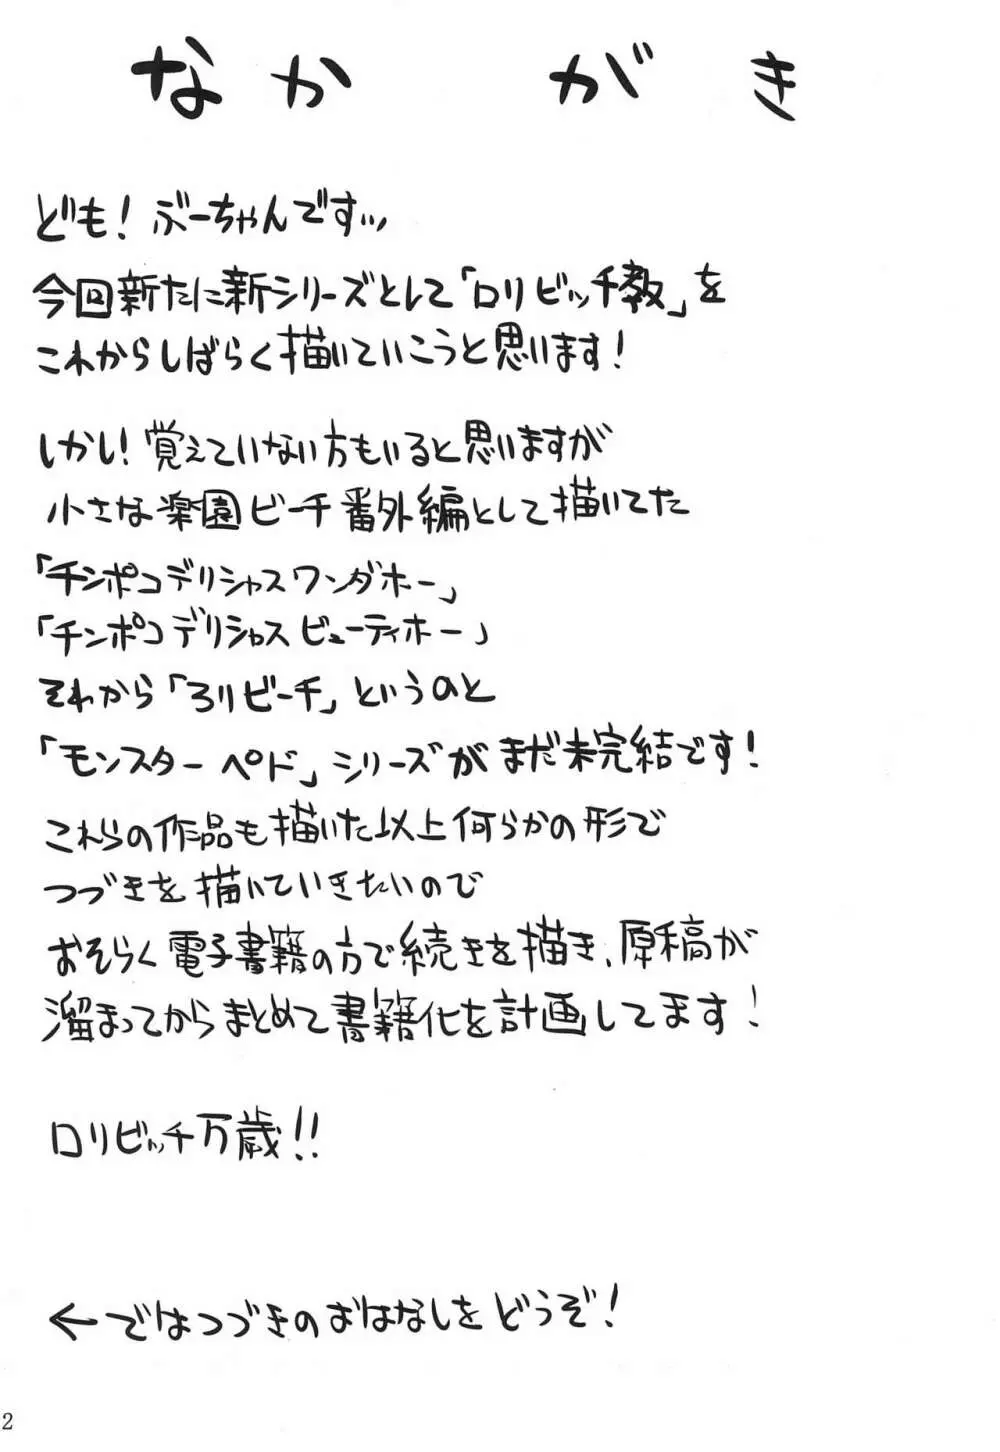 なかがき
ども！ぶーちゃんですッ
今回新たに新シリーズとして「ロリビッチ教」を
これからしばらく描いていこうと思います！
しかし！覚えていない方もいると思いますが
小さな楽園ビーチ番外編として描いてた
「チンポコデリシャスワンダホー」
「チンポコデリシャスビューティホー」
それから「ろリビーチ」というのと
「モンスターペド」シリーズがまだ未完結です！
これらの作品も描いた以上何らかの形で
つづきを描いていきたいので
おそらく電子書籍の方で続きを描き、原稿が
溜まってからまとめて書籍化を計画してます！
ロリビッチ万歳！！
←ではつづきのおはなしをどうぞ！
2